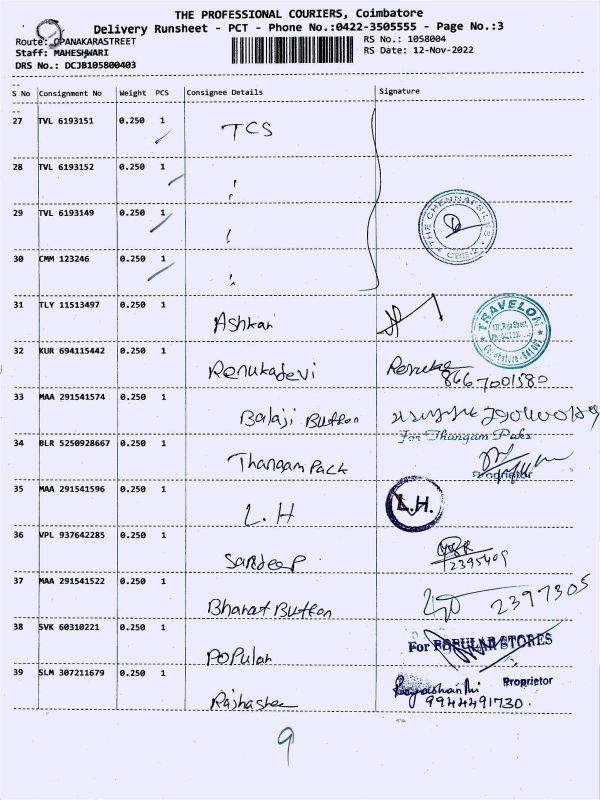 THE PROFESSIONAL COURIERS, Coimbatore
Delivery Runsheet - PCT - Phone No.:0422-3505555 - Page No.:3
Route: OPANAKARASTREET
RS No.: 1058004
Staff: MAHESHWARI
RS Date: 12-Nov-2022
DRS No.: DCJB105800403
S No Consignment No Weight PCS Consignee Details Signature
27 TVL 6193151 0.250 1 TCS
28 TVL 6193152 0.250 1
29 TVL 6193149 0.250 1
THE CHENNAI SILKS
CBE-1
30 CMM 123246 0.250 1
31 TLY 11513497 0.250 1 Ashkar
TRAVELON
Coimbatore - 641 001
32 KUR 694115442 0.250 1 Renukadevi Renuka
8667001580
33 MAA 291541574 0.250 1 Balaji Button
For Thangam Paks
34 BLR 5250928667 0.250 1 Thangam Pack
Proprietor
35 MAA 291541596 0.250 1 L.H L.H.
36 VPL 937642285 0.250 1 Sandeep
2395409
37 MAA 291541522 0.250 1 Bharat Button 2397305
38 SVK 60310221 0.250 1 Popular For POPULAR STORES
Proprietor
39 SLM 307211679 0.250 1
9944491730
9